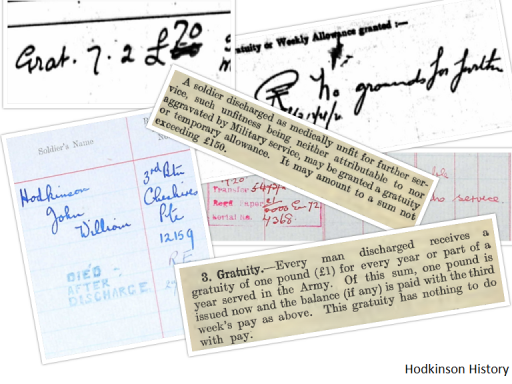 Grat. 7.2 £70
atuity or Weekly Allowance granted :—
no grounds for further
A soldier discharged as medically unfit for further ser-
vice, such unfitness being neither attributable to nor
aggravated by Military service, may be granted a gratuity
or temporary allowance. It may amount to a sum not
exceeding £150.
Soldier's Name
Hodkinson
John
William
3rd Btn
Cheshire
Pte
12159
DIED
AFTER
DISCHARGE
Transfer
4368.
no service
3. Gratuity.—Every man discharged receives a
gratuity of one pound (£1) for every year or part of a
year served in the Army. Of this sum, one pound is
issued now and the balance (if any) is paid with the third
week's pay as above. This gratuity has nothing to do
with pay.
Hodkinson History